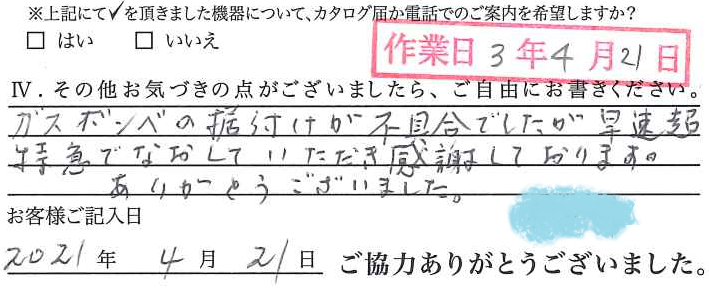 ※上記にて✓を頂きました機器について、カタログ届か電話でのご案内を希望しますか?
□ はい □ いいえ
作業日 3年4月21日
Ⅳ.その他お気づきの点がございましたら、ご自由にお書きください。
ガスボンベの据付けが不具合でしたが早速超
特急でなおしていただき感謝しております。
ありがとうございました。
お客様ご記入日
2021年 4月 21日 ご協力ありがとうございました。